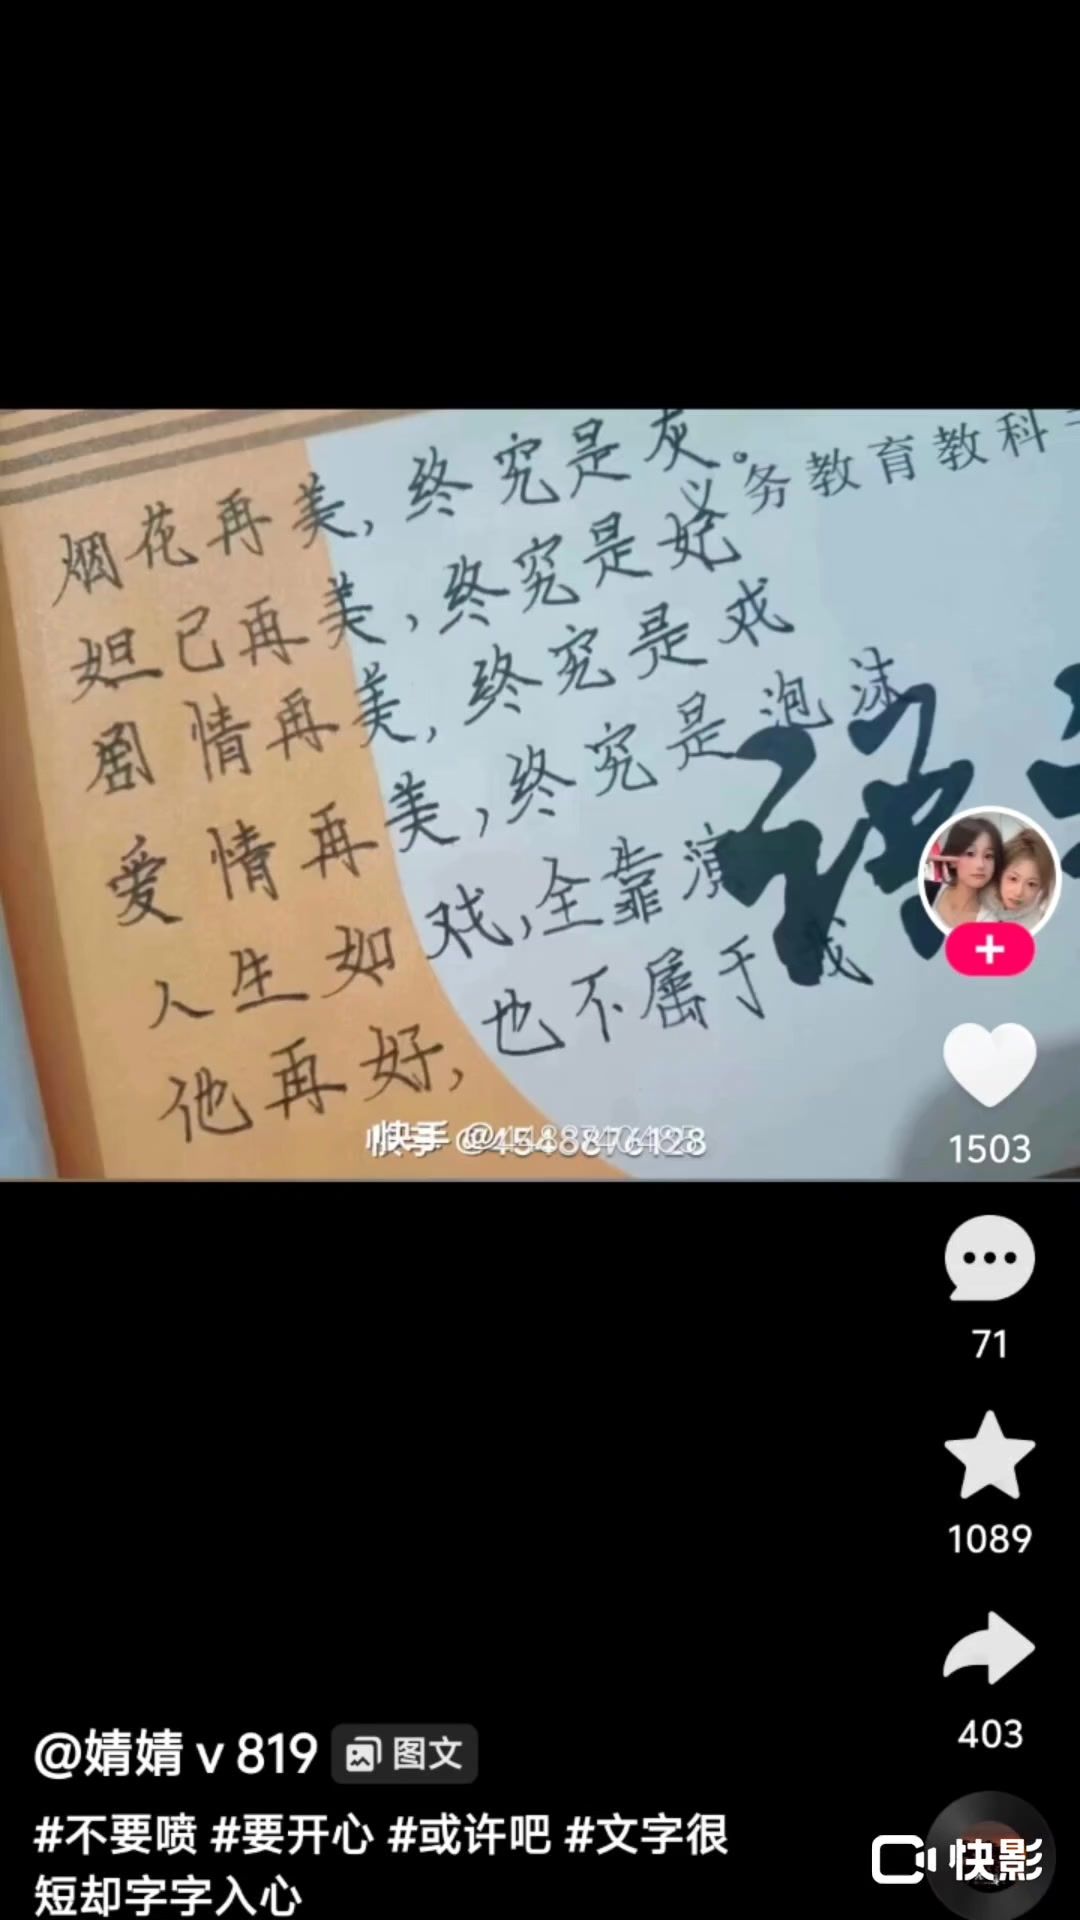 烟花再美,终究是灰。
义务教育教科
妲己再美,终究是妃
剧情再美,终究是戏
爱情再美,终究是泡沫
人生如戏,全靠演
他再好,也不属于我
快手
1503
71
1089
403
@婧婧 v 819 图文
#不要喷 #要开心 #或许吧 #文字很
短却字字入心
快影